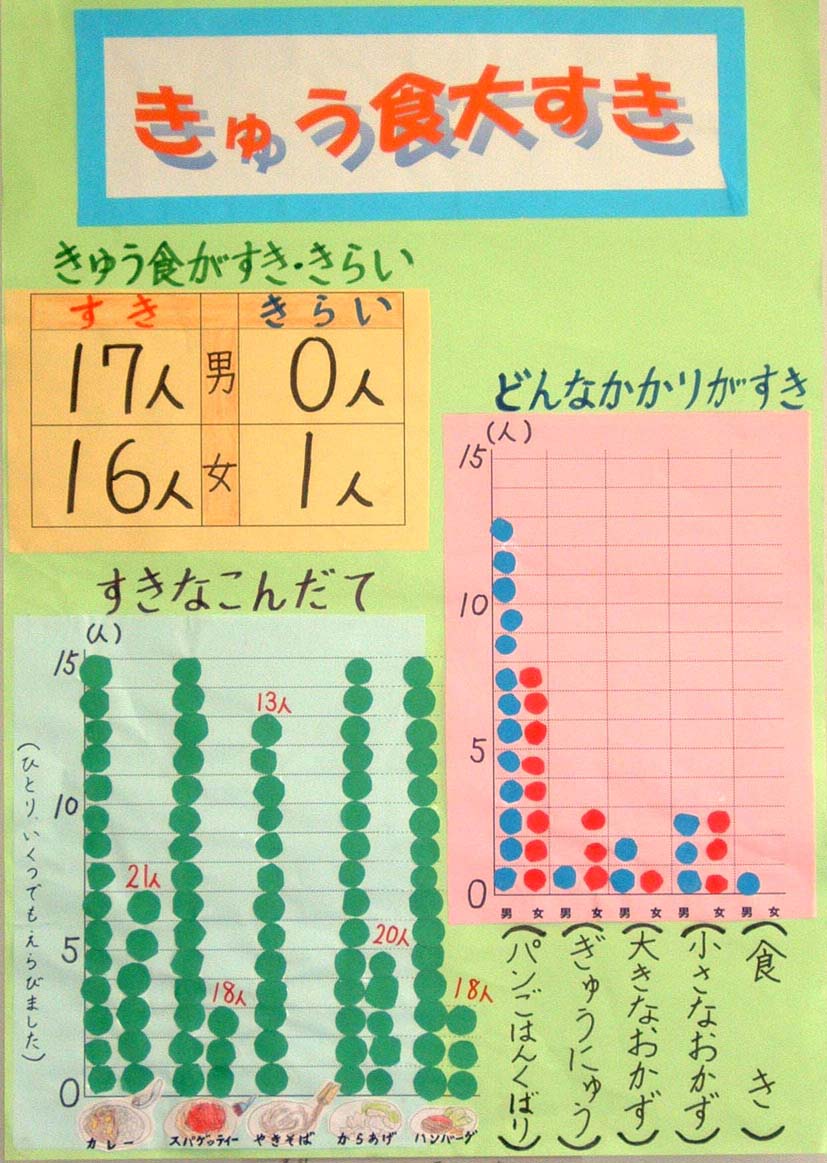 きゅう食大すき
きゅう食がすき・きらい
すき きらい
17人 男 0人
16人 女 1人
どんなかかりがすき
(人)
15
10
5
0
男 女 男 女 男 女 男 女 男 女
(パンごはんくばり)
(ぎゅうにゅう)
(大きなおかず)
(小さなおかず)
(食き)
すきなこんだて
(人)
15
10
5
0
(ひとり、いくつでもえらびました)
21人
18人
13人
20人
18人
カレー スパゲッティー やきそば からあげ ハンバーグ